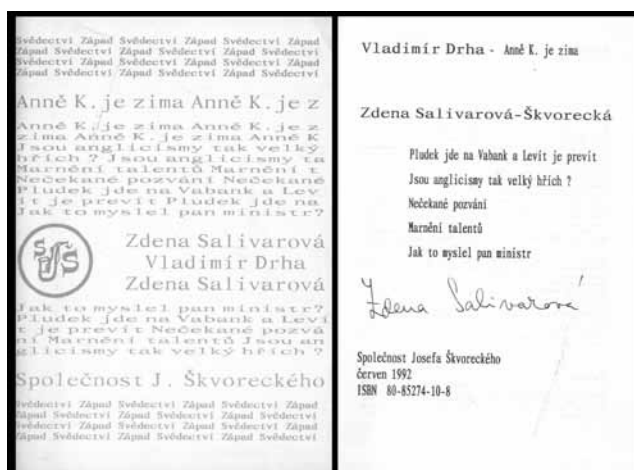 Svědectví Západ Svědectví Západ Svědectví Západ
Západ Svědectví Západ Svědectví Západ Svědectví
Svědectví Západ Svědectví Západ Svědectví Západ
Západ Svědectví Západ Svědectví Západ Svědectví
Anně K. je zima Anně K. je z
Anně K. je zima Anně K. je
zima Anně K. je zima Anně K
Jsou anglicismy tak velký
hřích ? Jsou anglicismy ta
Marnění talentů Marnění t
Nečekané pozvání Nečekané
Pludek jde na Vabank a Lev
ít je prevít Pludek jde na
Jak to myslel pan ministr?
SJŠ
Zdena Salivarová
Vladimír Drha
Zdena Salivarová
Jak to myslel pan ministr?
Pludek jde na Vabank a Leví
t je prevít Nečekané pozvá
ní Marnění talentů Jsou an
glicismy tak velký hřích ?
Společnost J. Škvoreckého
Svědectví Západ Svědectví Západ Svědectví Západ
Západ Svědectví Západ Svědectví Západ Svědectví
Svědectví Západ Svědectví Západ Svědectví Západ
Západ Svědectví Západ Svědectví Západ Svědectví
Vladimír Drha - Anně K. je zima
Zdena Salivarová-Škvorecká
Pludek jde na Vabank a Levít je prevít
Jsou anglicismy tak velký hřích ?
Nečekané pozvání
Marnění talentů
Jak to myslel pan ministr
Zdena Salivarová
Společnost Josefa Škvoreckého
červen 1992
ISBN 80-85274-10-8